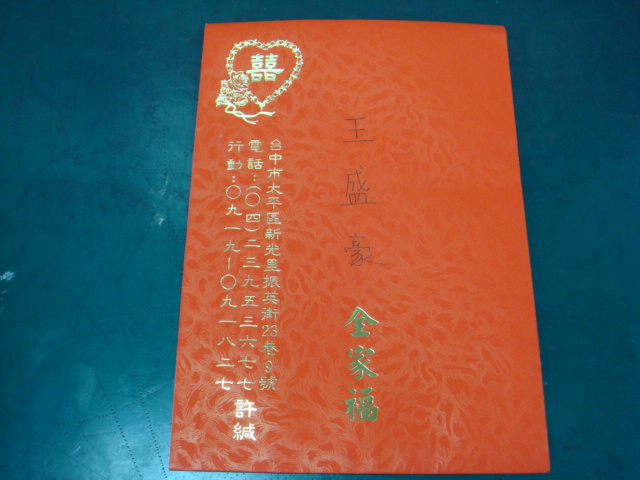 王盛豪
全家福
囍
台中市太平區新光里振英街23巷9號
電話：(〇四)二三九五三六七七
行動：〇九一九－〇九一八二七
許緘